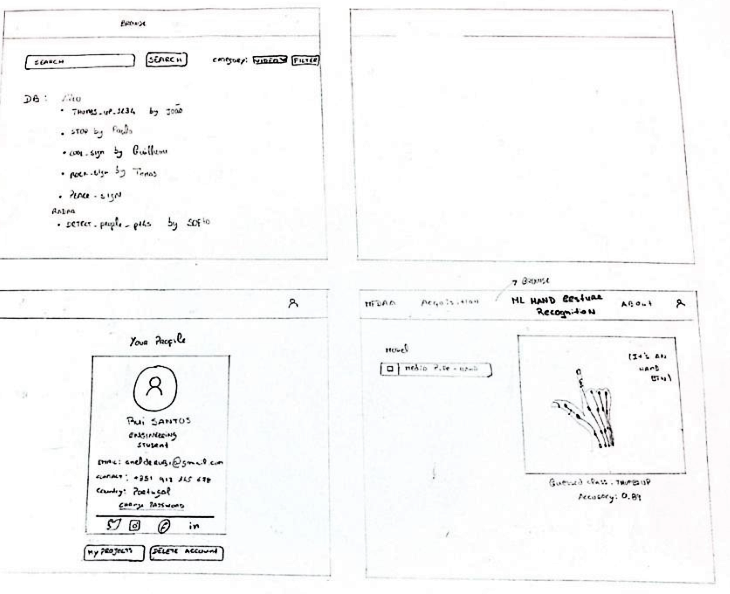 BROWSE
SEARCH SEARCH category: VIDEO FILTER
DB:
• THUMBS_UP_1234 by João
• STOP by Paulo
• COOL_sign by Guilherme
• ROCK_sign by Tomas
• PEACE_SIGN
RADAR
• DETECT_people_paths by SOFIA
Your Profile
Rui SANTOS
ENGINEERING
STUDENT
EMAIL:
CONTACT: +351 912 345 678
Country: Portugal
CHANGE PASSWORD
in
MY PROJECTS DELETE ACCOUNT
? BROWSE
Acquisition ML HAND GESTURE ABOUT
Recognition
Model
(It's AN
HAND
Guessed class: THUMBSUP
Accuracy: 0.89